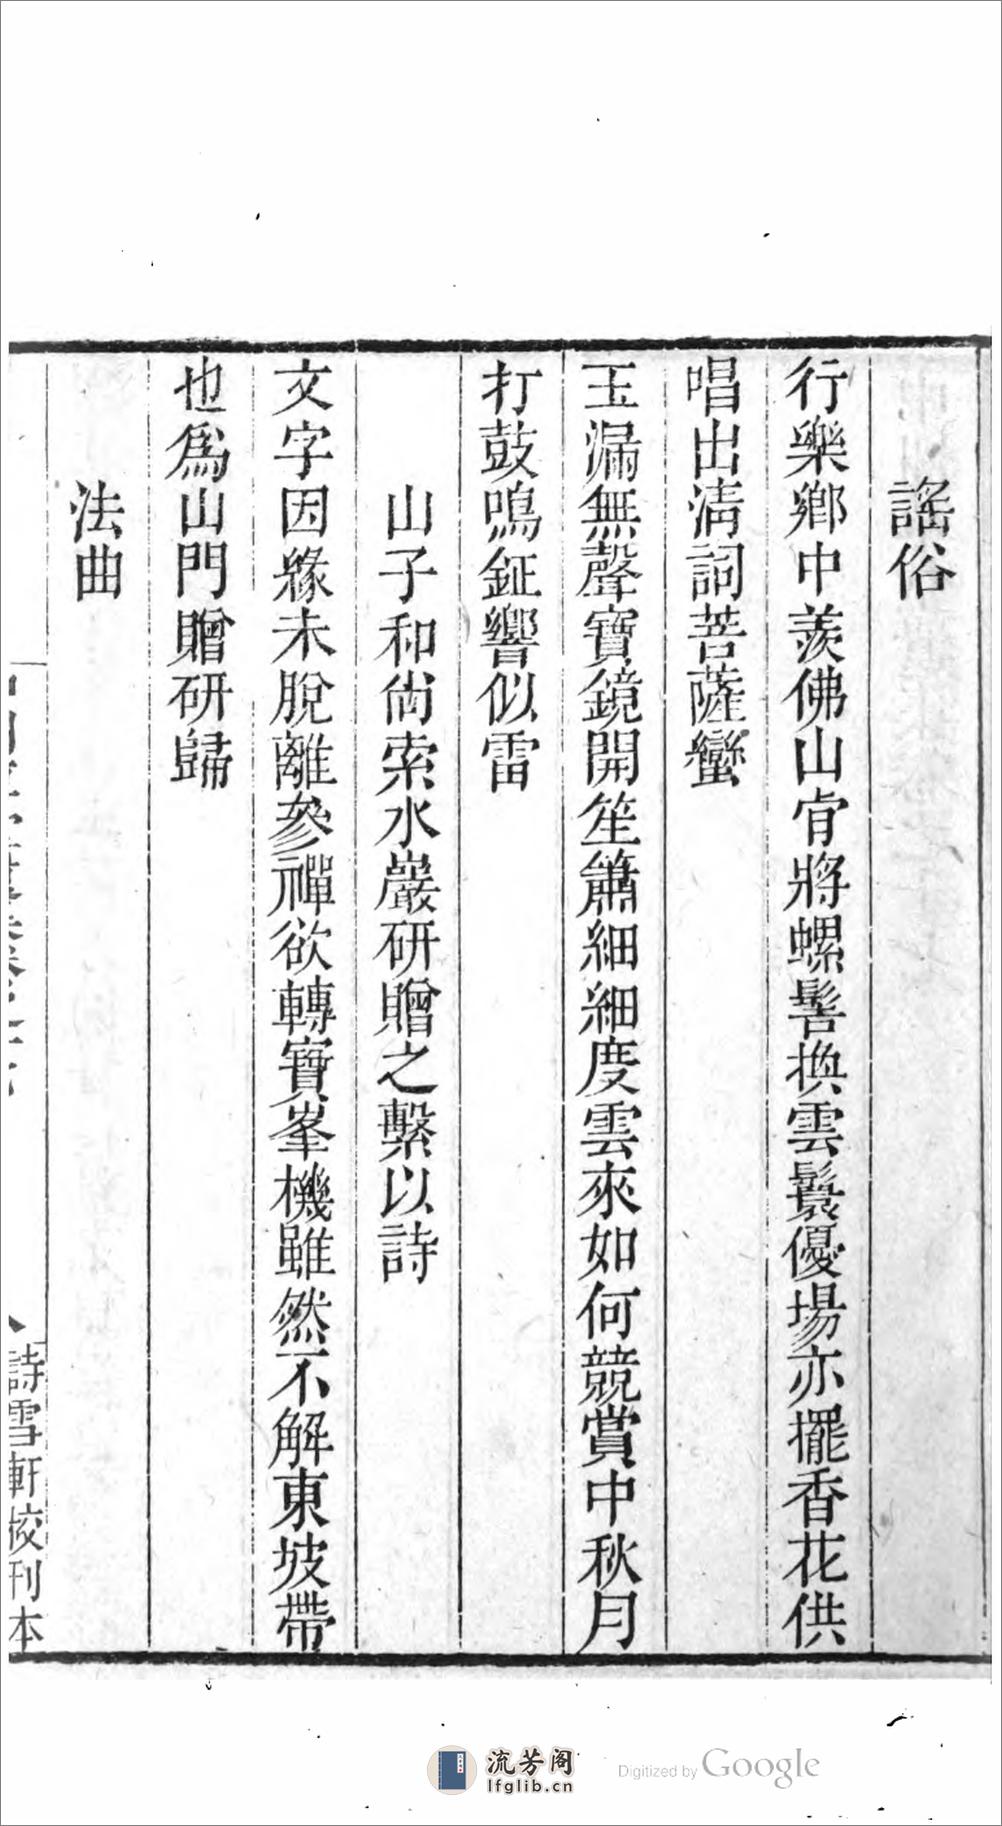 謠俗
行樂鄉中羨佛山肯將螺髻換雲鬟優場亦擺香花供
唱出清詞菩薩蠻
玉漏無聲寶鏡開笙簫細細度雲來如何競賞中秋月
打鼓鳴鉦響似雷
山子和尙索水巖研贈之繫以詩
文字因緣未脫離參禪欲轉寶峯機雖然不解東坡帶
也爲山門贈研歸
法曲
詩雪軒校刊本
流芳阁
lfglib.cn
Digitized by Google